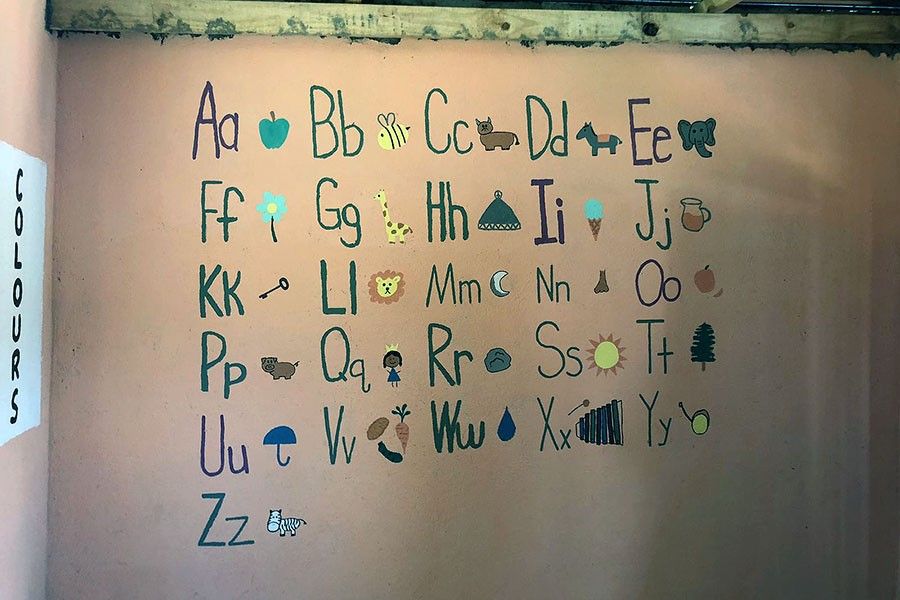 COLOURS
Aa Bb Cc Dd Ee
Ff Gg Hh Ii Jj
Kk Ll Mm Nn Oo
Pp Qq Rr Ss Tt
Uu Vv Ww Xx Yy
Zz